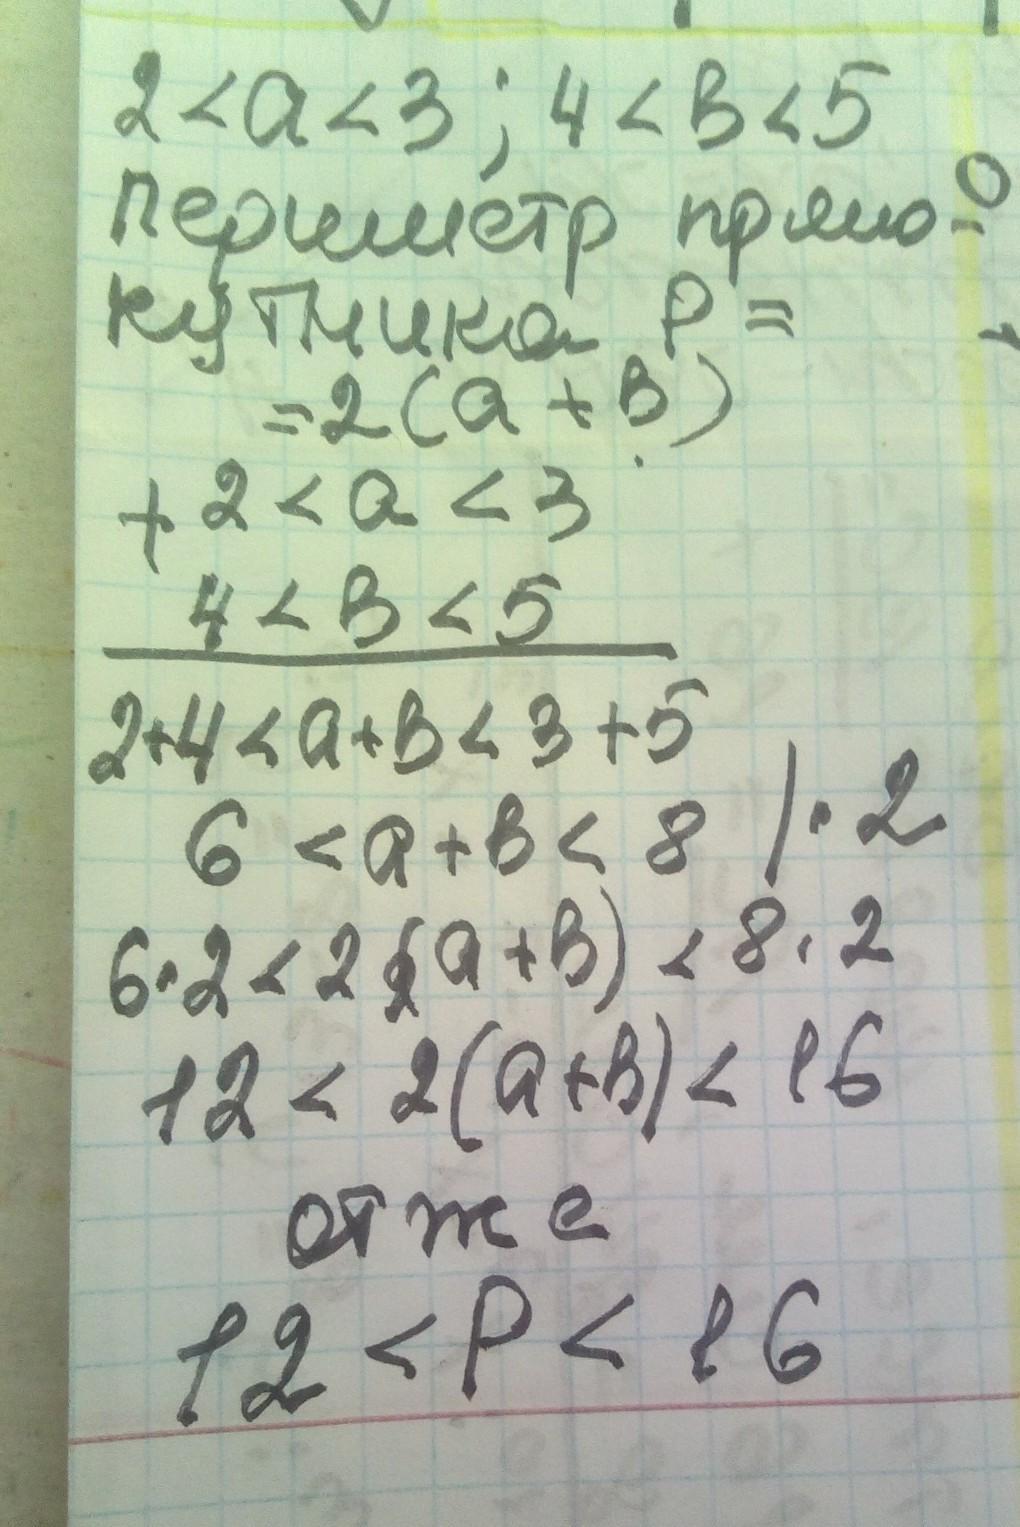 2 < a < 3 ; 4 < в < 5
Периметр прямо-
кутника P =
= 2 (a + в)
+ 2 < a < 3
4 < в < 5
2+4 < a+в < 3+5
6 < a+в < 8 / · 2
6·2 < 2 (a+в) < 8·2
12 < 2(a+в) < 16
отже
12 < P < 16